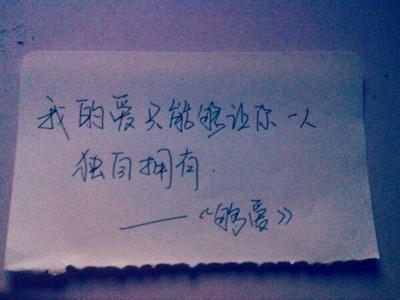 我的爱只能够让你一人
独自拥有.
——《够爱》